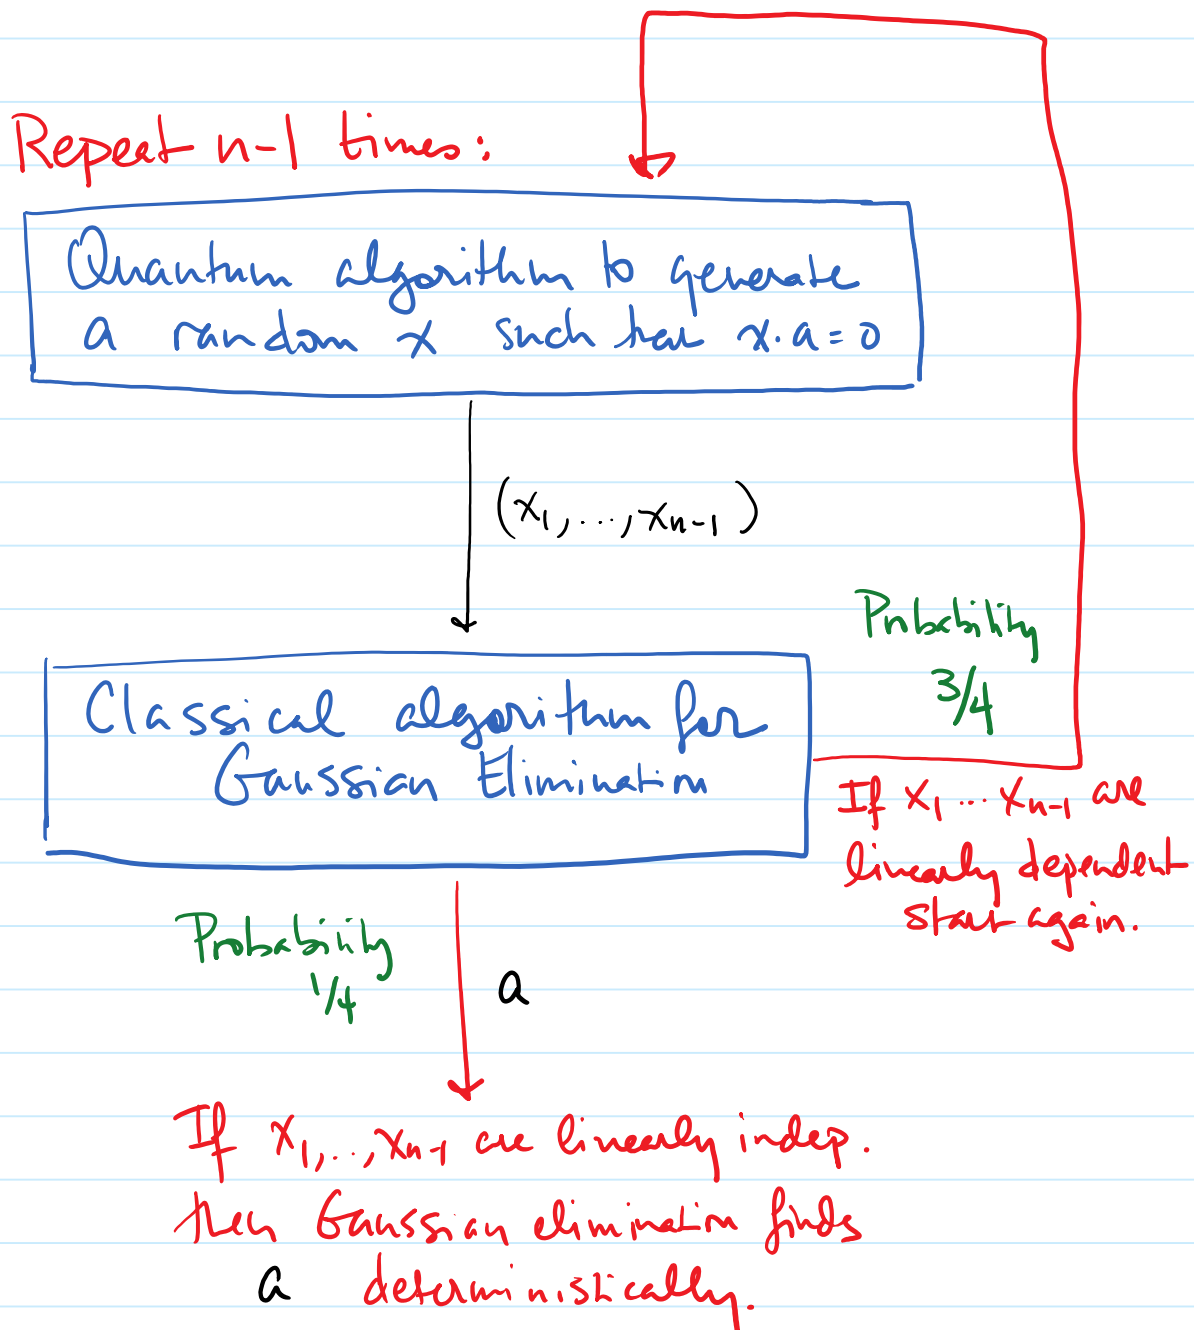 Repeat n-1 times:
Quantum algorithm to generate
a random x such that x·a=0
(x₁,...,xₙ₋₁)
Probability
3/4
Classical algorithm for
Gaussian Elimination
If x₁...xₙ₋₁ are
linearly dependent
start again.
Probability
1/4
a
If x₁,..,xₙ₋₁ are linearly indep.
then Gaussian elimination finds
a deterministically.